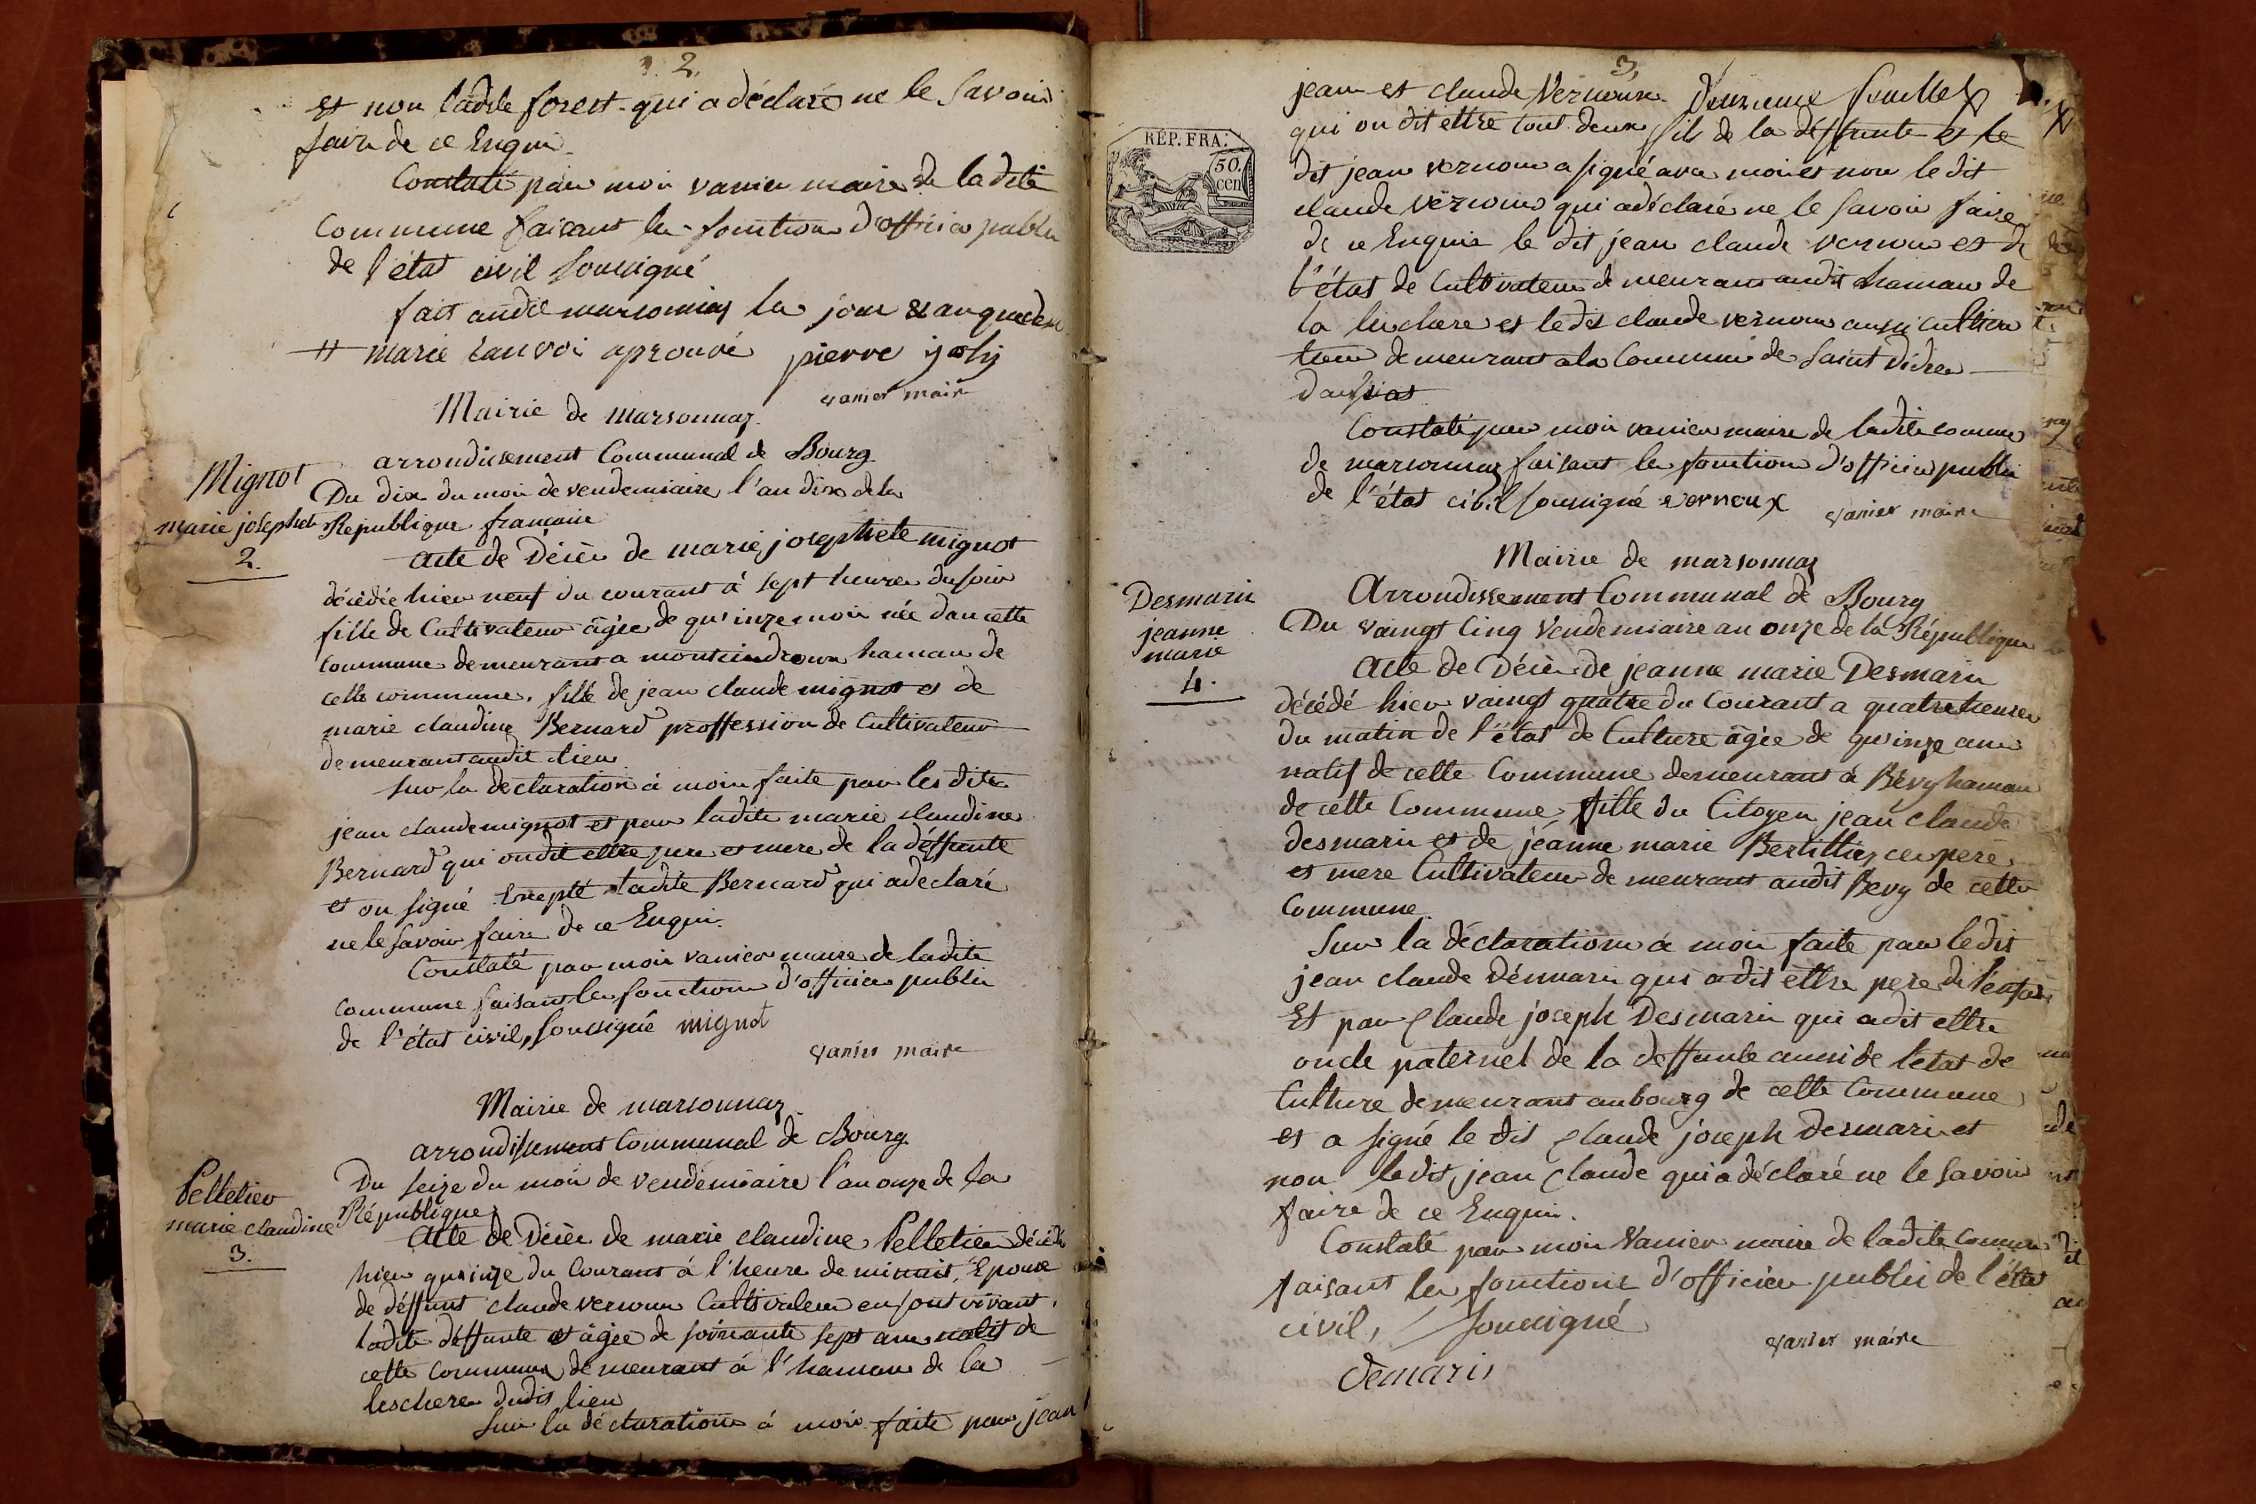 2.
et non ladite forest qui a déclaré ne le Savoir
faire de ce Enquis
Constaté par moi vanier maire de la dite
Commune faisant les fonctions d'officier public
de l'état civil Soussigné
fait audit marsonnas les jour & an que de
marie Lauvoi aprouvé pierre joly
vanier maire
Mairie de marsonnaz
arrondissement Communal de Bourg
Mignot
marie josephete
2.
Du dix du mois de vendemiaire l'an dix de la
Republique francaise
Acte de Décès de marie josephete mignot
décédée hier neuf du courant à sept heures du soir
fille de Cultivateur âgée de qu'inze mois née dans cette
Commune demeurant a montcindroux hamau de
cette commune, fille de jean claude mignot et de
marie claudine Bernard proffession de Cultivateur
demeurant audit lieu
Sur la déclaration à moi faite par les dits
jean claude mignot et par ladite marie claudine
Bernard qui on dit ettre pere et mere de la déffunte
et on signé Excepté ladite Bernard qui a declaré
ne le savoir faire de ce Enquis.
Constaté par moi vanier maire de ladite
commune faisant les fonctions d'officier public
de l'état civil, soussigné mignot
vanier maire
Mairie de marsonnaz
arrondissement Communal de Bourg
Pelletier
marie claudine
3.
Du seize du mois de vendémiaire l'an onze de la
République
Acte de Décès de marie claudine Pelletier décédée
hier quinze du Courant à l'heure de minuit, Epouse
de déffunt claude vernoux Cultivateur en sont vivant,
ladite déffunte et âgée de soixante sept ans natif de
cette commune demeurant à l'hamau de la
leschere dudit lieu
Sur la déclaration à moi faite par jean
3.
jean et claude Vernoux Deuxieme feuillet
qui on dit ettre tout deux fils de la déffunte et le
RÉP. FRA.
50.
cen
dit jean vernoux a signé avec moi et non le dit
claude vernoux qui a déclaré ne le savoir faire
de ce Enquis le dit jean claude vernoux et de
l'état de Cultivateur demeurant audit hamau de
la leschere et ledit claude vernoux aussi cultiva
teur demeurant a la Commune de Saint didier
daussiat
Constaté par moi vanier maire de ladite commune
de marsonnaz faisant les fonctions d'officier public
de l'état civil soussigné vernoux
vanier maire
Mairie de marsonnaz
Arrondissement Communal de Bourg
Desmaris
jeanne
marie
4.
Du vaingt Cinq Vendemiaire an onze de la République
Acte de Décès de jeanne marie Desmaris
décédé hier vaingt quatre du Courant a quatre heures
du matin de l'état de Culture âgée de qu'inze ans
natif de cette Commune demeurant à Bévy hamau
de cette Commune, fille du Citoyen jean claude
desmaris et de jéanne marie Bertillier ces pere
et mere Cultivateur demeurant audit Bevy de cette
Commune
Sur la déclaration à moi faite par ledit
jean claude démaris qui a dit ettre pere de l'enfant
Et par Claude joseph Desmaris qui a dit ettre
oncle paternel de la deffunte aussi de l'etat de
Culture demeurant au bourg de cette Commune
et a signé le dit Claude joseph desmaris et
non ledit jean Claude qui a déclaré ne le savoir
faire de ce Enquis.
Constaté par moi Vanier maire de ladite Commune
faisant les fonctions d'officier public de l'état
civil, soussigné
vanier maire
démaris